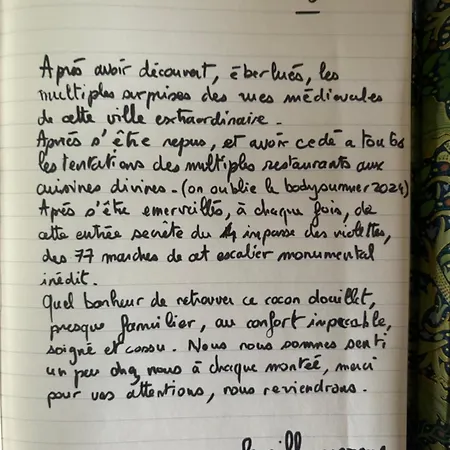 Après avoir découvert, éberlués, les
multiples surprises des rues médiévales
de cette ville extraordinaire.
Après s'être repus, et avoir cedé a toutes
les tentations des multiples restaurants aux
cuisines divines - (on oublie le body summer 2024)
Après s'être emerveillés, à chaque fois, de
cette entrée secrète du 4 impasse des violettes,
des 77 marches de cet escalier monumental
inédit.
Quel bonheur de retrouver ce cocon douillet,
presque familier, au confort impeccable,
soigné et cossu. Nous nous sommes senti
un peu chez nous à chaque montée, merci
pour vos attentions, nous reviendrons.